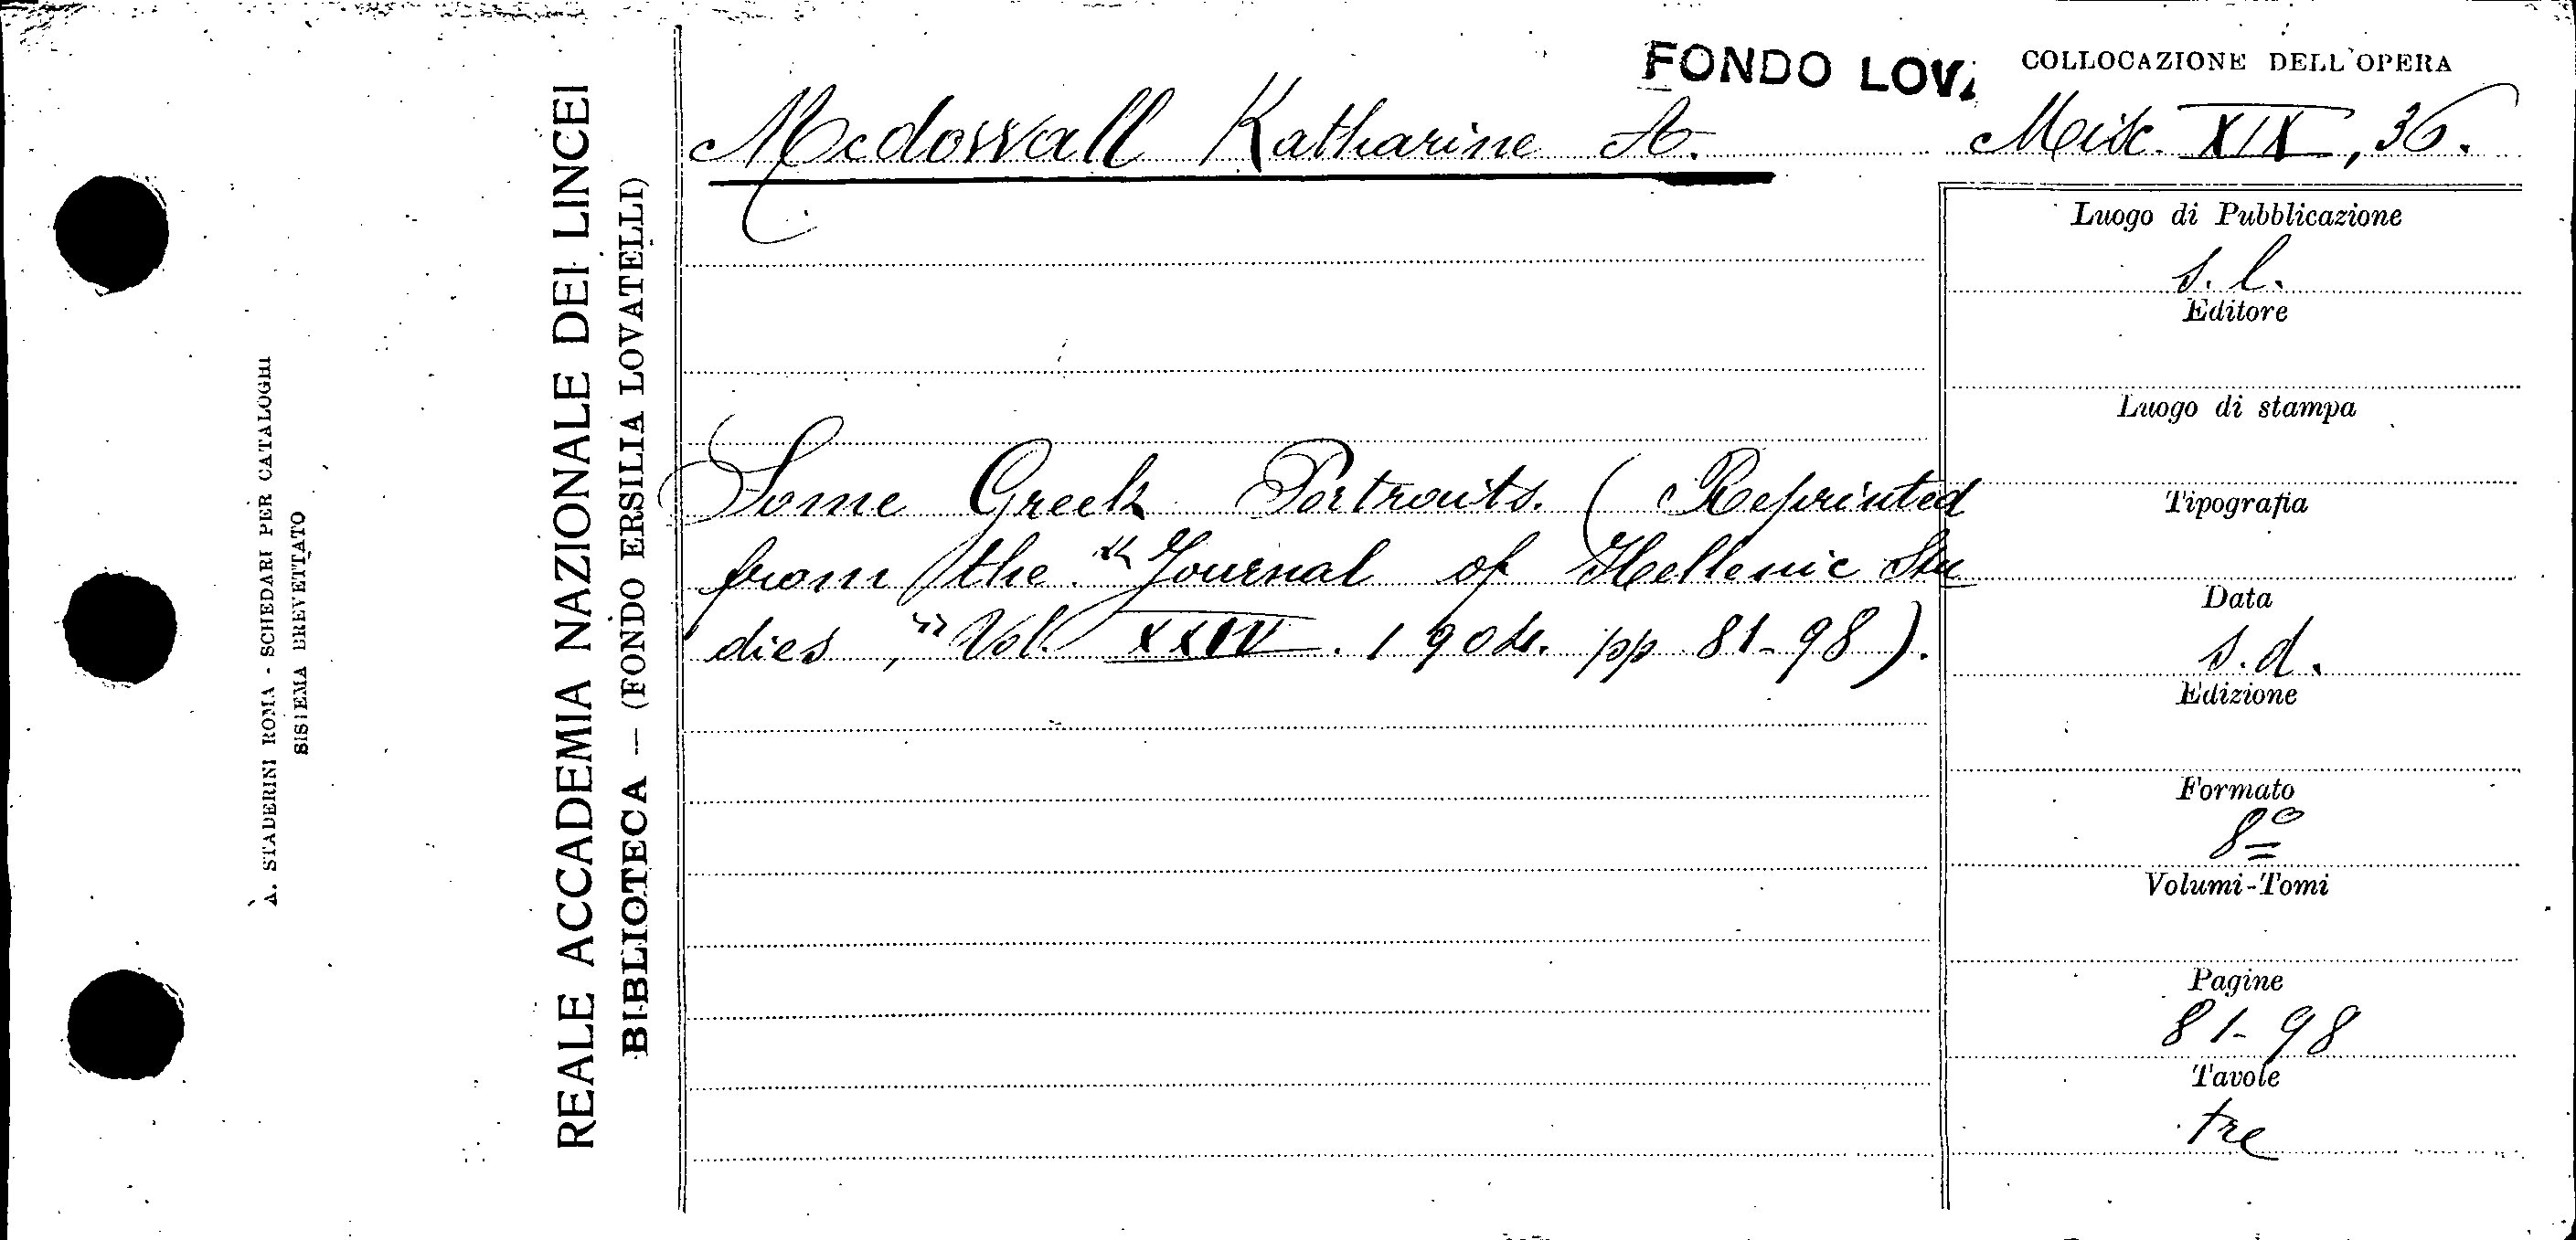 FONDO LOV
COLLOCAZIONE DELL'OPERA
Mcdowall Katharine A.
Misc. XIX, 36.
Some Greek Portraits. (Reprinted
from the "Journal of Hellenic Stu
dies," Vol. XXIV. 1904. pp 81-98).
Luogo di Pubblicazione
s. l.
Editore
Luogo di stampa
Tipografia
Data
s. d.
Edizione
Formato
8º
Volumi-Tomi
Pagine
81-98
Tavole
tre
REALE ACCADEMIA NAZIONALE DEI LINCEI
BIBLIOTECA — (FONDO ERSILIA LOVATELLI)
A. STADERINI ROMA - SCHEDARI PER CATALOGHI
SISTEMA BREVETTATO